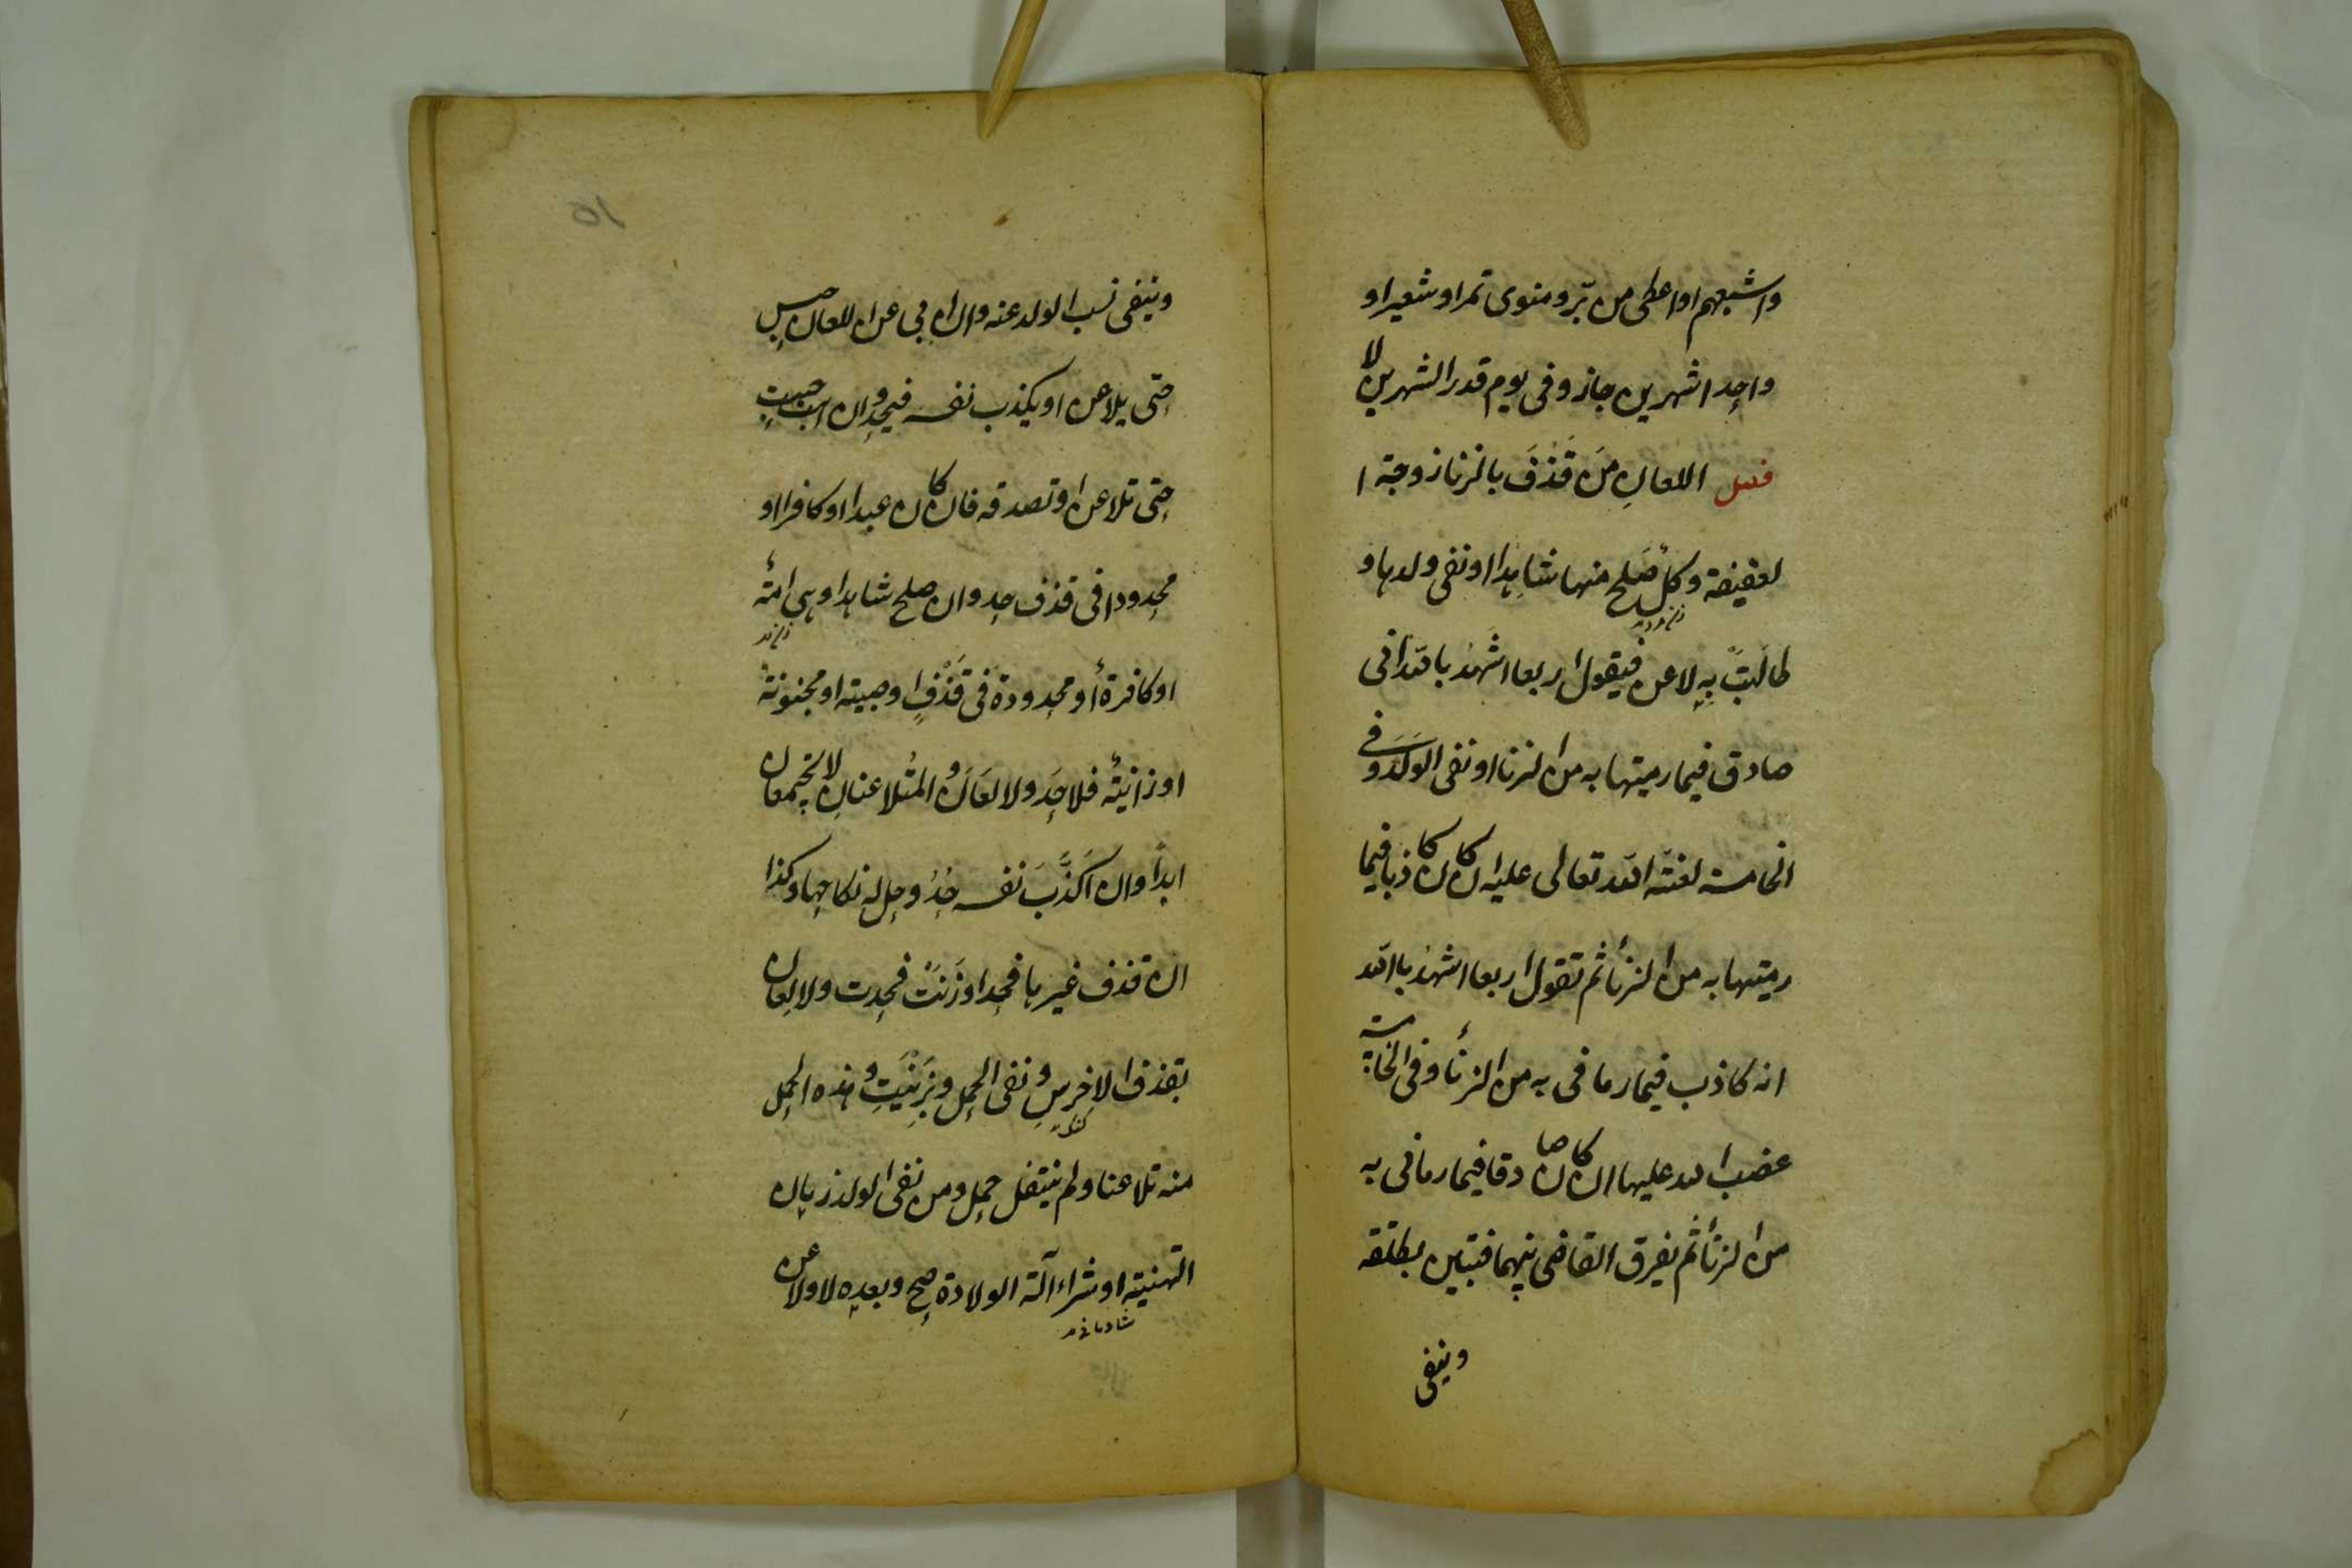 واشبعهم او اعطى من بر ومنوى تمر او شعير او
واحدا شهرين جاز وفى يوم قدر الشهرين لا
فصل اللعان من قذف بالزنا زوجة ا
لعفيفة وكل صلح منها شاهدا او نفى ولدها و
طالبت به لاعن فيقول اربعا اشهد بالله انى
صادق فيما رميتها به من الزنا او نفى الولد وفى
الخامسة لعنة الله تعالى عليه ان كان كاذبا فيما
رميتها به من الزنا ثم تقول اربعا اشهد بالله
انه كاذب فيما رمانى به من الزنا وفى الخامسة
غضب الله عليها ان كان صادقا فيما رمانى به
من الزنا ثم يفرق القاضى بينهما فتبين بطلقة
وينفى
15
وينفى نسب الولد عنه وان ابى عن اللعان حبس
حتى يلاعن او يكذب نفسه فيحد وان ابت حبست
حتى تلاعن او تصدقه فان كان عبدا او كافرا او
محدودا فى قذف حد وان صلح شاهدا وهى امة
او كافرة او محدودة فى قذف او صبية او مجنونة
او زانية فلا حد ولا لعان والمتلاعنان لا يجتمعان
ابدا وان اكذب نفسه حد وحل له نكاحها وكذا
ان قذف غيرها فحد او زنت فحدت ولا لعان
بقذف الاخرس ونفى الحمل وبزنيت وهذه الحمل
منه تلاعنا ولم ينتف الحمل ومن نفى الولد زمان
التهنية او شراء آلة الولادة صح وبعده لا ولاعن